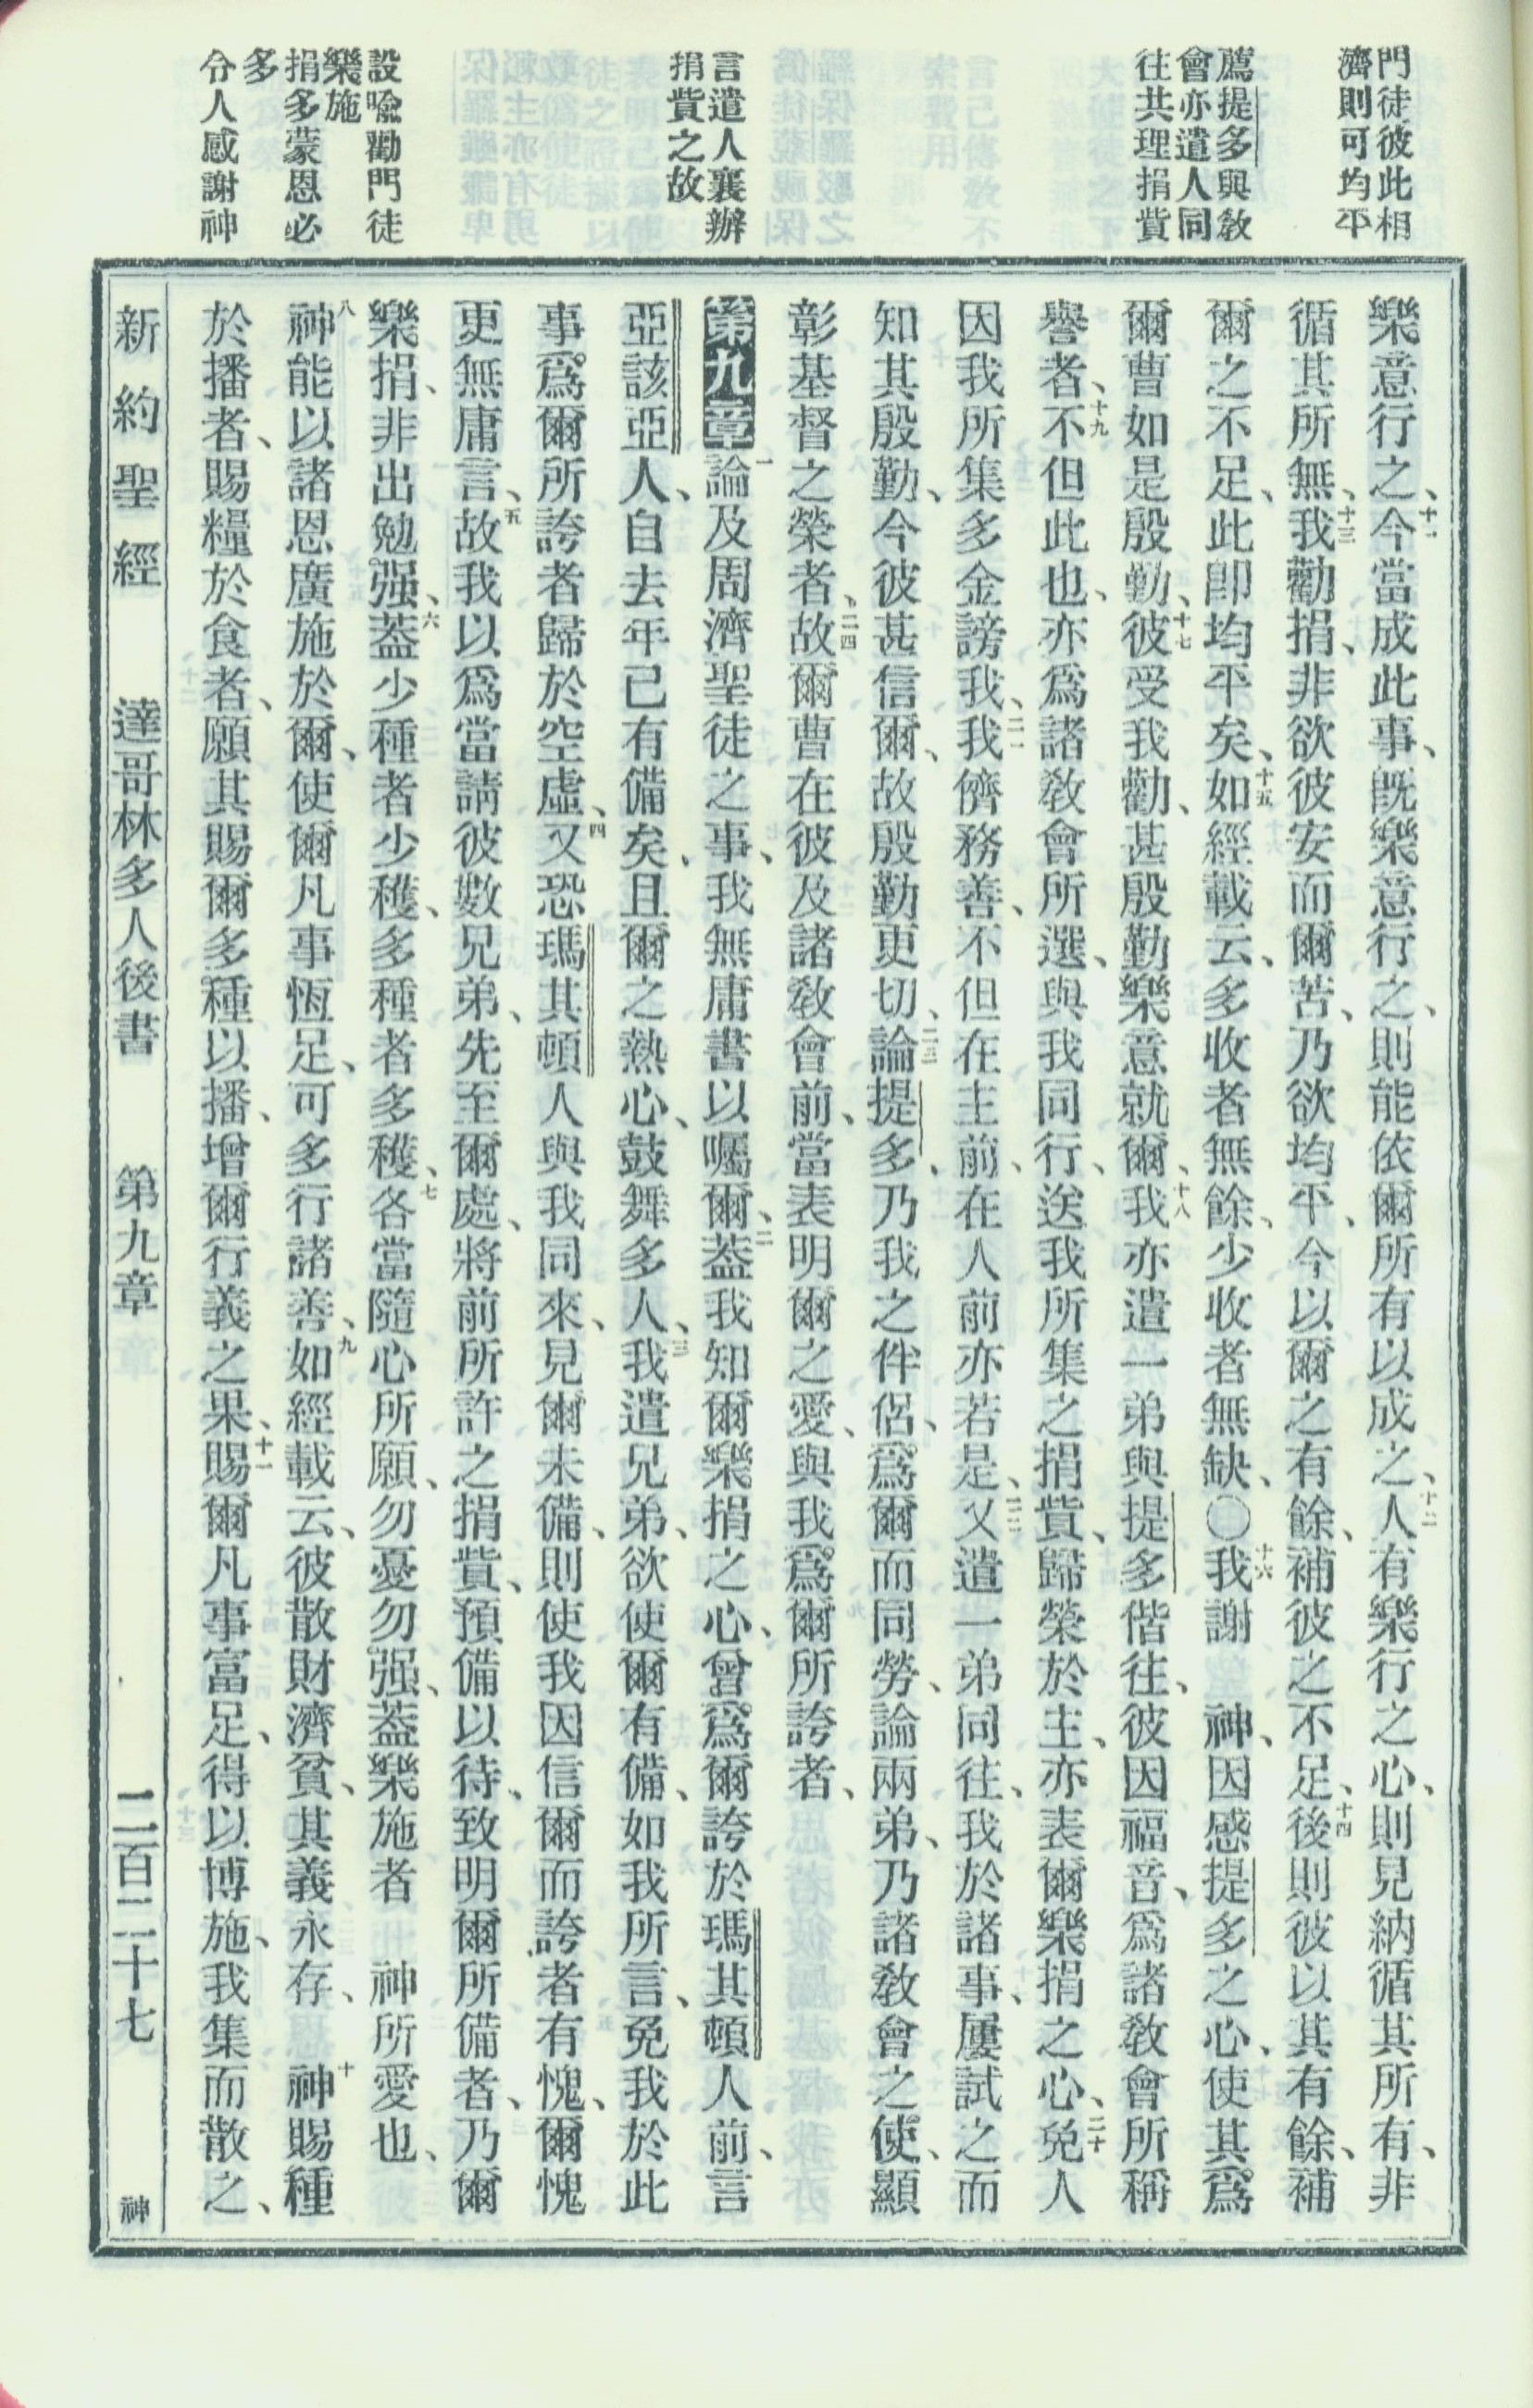 門徒彼此相
濟則可均平
薦提多與敎
會亦遣人同
往共理捐貲
言遣人襄辦
捐貲之故
設喩勸門徒
樂施
捐多蒙恩必
多
分人感謝神
樂意行之、十一今當成此事、既樂意行之、則能依爾所有以成之、十二人有樂行之心、則見納循其所有、非
循其所無、十三我勸捐、非欲彼安而爾苦、乃欲均平、今以爾之有餘、補彼之不足、十四後則彼以其有餘、補
爾之不足、此卽均平矣、十五如經載云、多收者無餘、少收者無缺、〇十六我謝　神、因感提多之心、使其爲
爾曹如是殷勤、十七彼受我勸、甚殷勤樂意就爾、十八我亦遣一弟與提多偕往、彼因福音、爲諸敎會所稱
譽者、十九不但此也、亦爲諸敎會所選、與我同行、送我所集之捐貲、歸榮於主、亦表爾樂捐之心、二十免人
因我所集多金謗我、二一我儕務善、不但在主前、在人前亦若是、二二又遣一弟同往、我於諸事、屢試之而
知其殷勤、今彼甚信爾、故殷勤更切、二三論提多、乃我之伴侶、爲爾而同勞、論兩弟、乃諸敎會之使、顯
彰基督之榮者、二四故爾曹在彼及諸敎會前、當表明爾之愛、與我爲爾所誇者、
第九章一論及周濟聖徒之事、我無庸書以囑爾、二葢我知爾樂捐之心、曾爲爾誇於瑪其頓人前、言
亞該亞人、自去年已有備矣、且爾之熱心、鼓舞多人、三我遣兄弟、欲使爾有備、如我所言、免我於此
事爲爾所誇者歸於空虛、四又恐瑪其頓人與我同來、見爾未備、則使我因信爾而誇者有愧、爾愧
更無庸言、五故我以爲當請彼數兄弟、先至爾處、將前所許之捐貲、預備以待、致明爾所備者、乃爾
樂捐、非出勉强、六葢少種者少穫、多種者多穫、七各當隨心所願、勿憂勿强、葢樂施者　神所愛也、
八神能以諸恩廣施於爾、使爾凡事恆足、可多行諸善、九如經載云、彼散財濟貧、其義永存、十神賜種
於播者、賜糧於食者、願其賜爾多種以播、增爾行義之果、十一賜爾凡事富足、得以博施、我集而散之、
新約聖經　達哥林多人後書　第九章　二百二十七　神